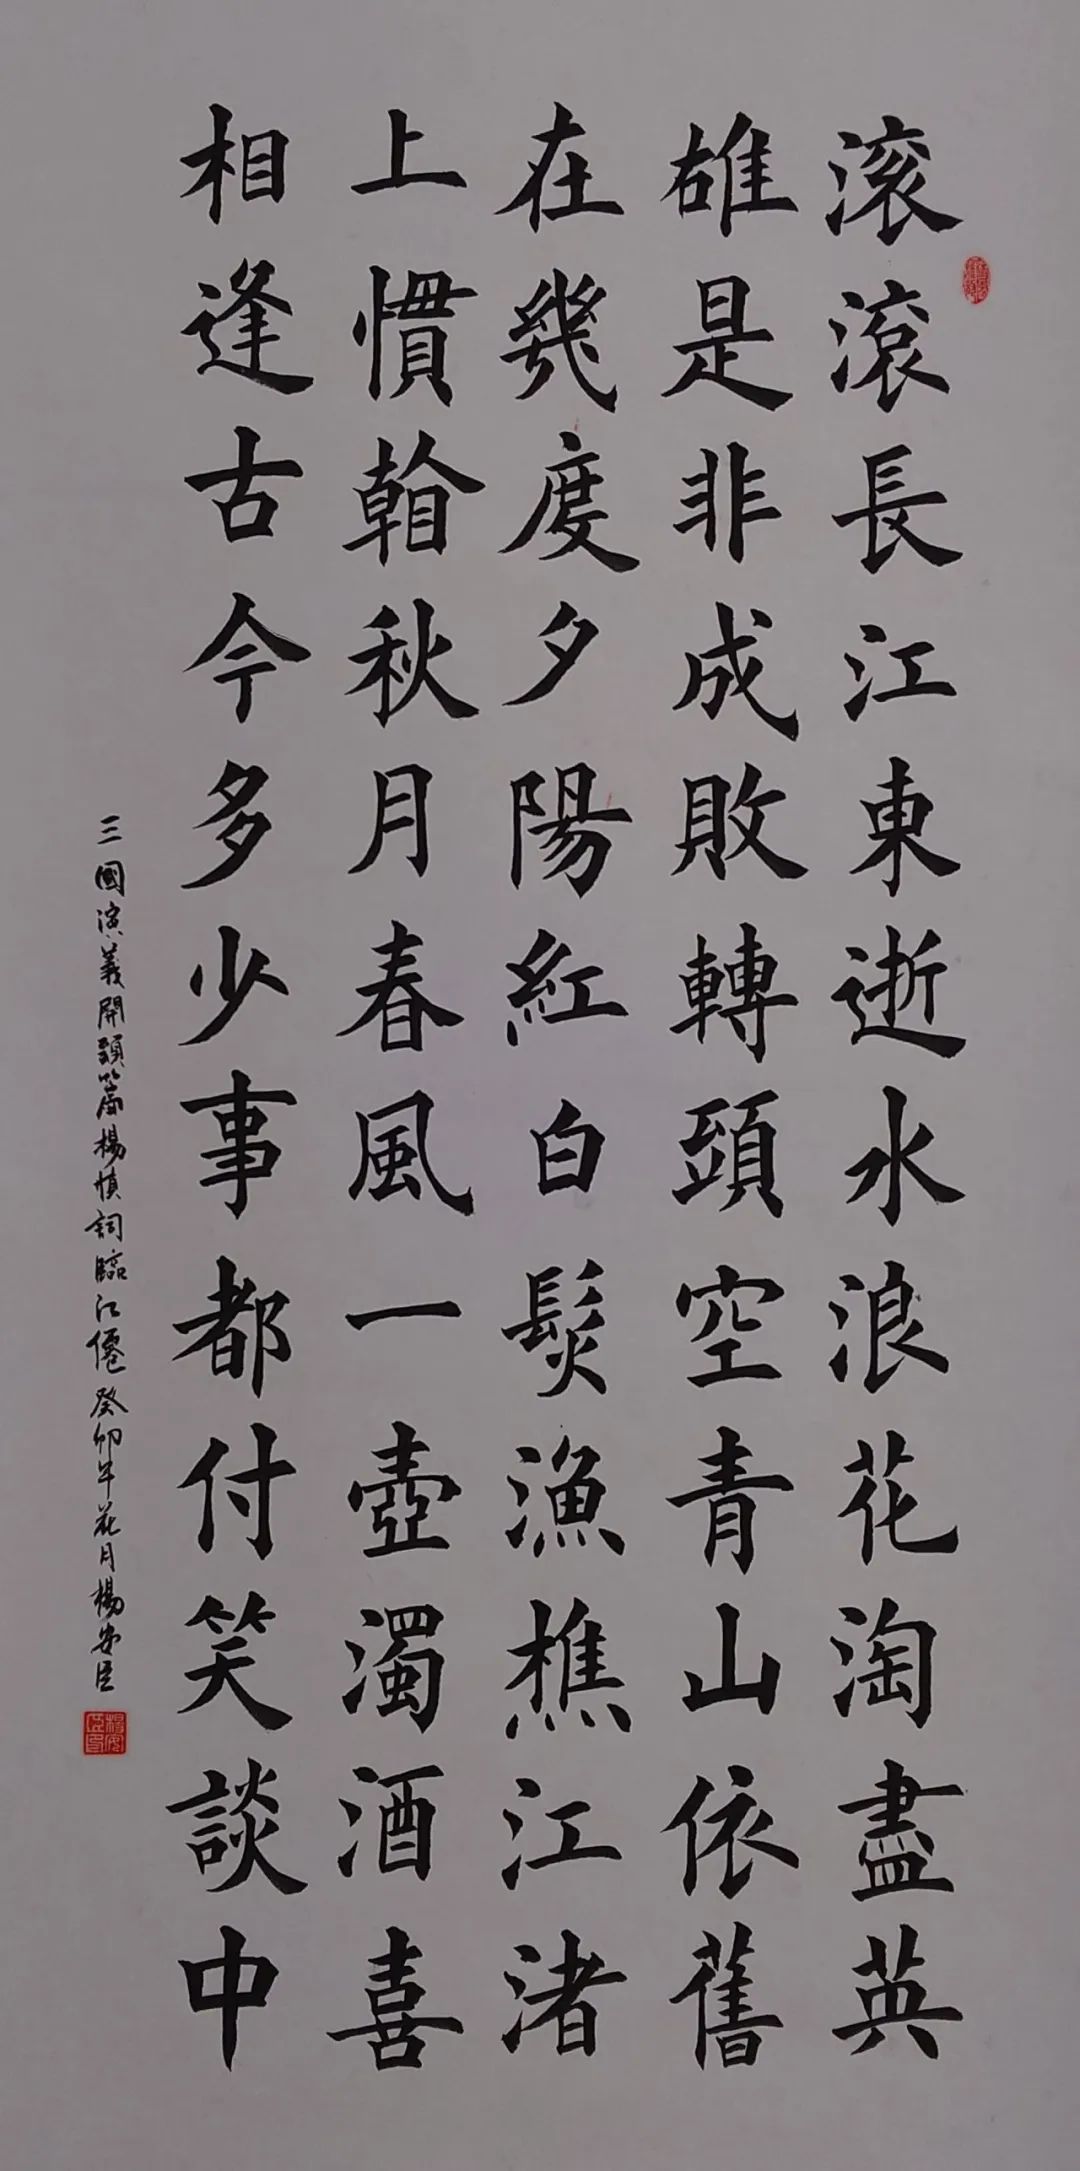 滚滾長江東逝水浪花淘盡英
雄是非成敗轉頭空青山依舊
在幾度夕陽紅白髮漁樵江渚
上慣看秋月春風一壺濁酒喜
相逢古今多少事都付笑談中
三國演義開頭篇楊慎詞臨江僊癸卯年花月楊安臣